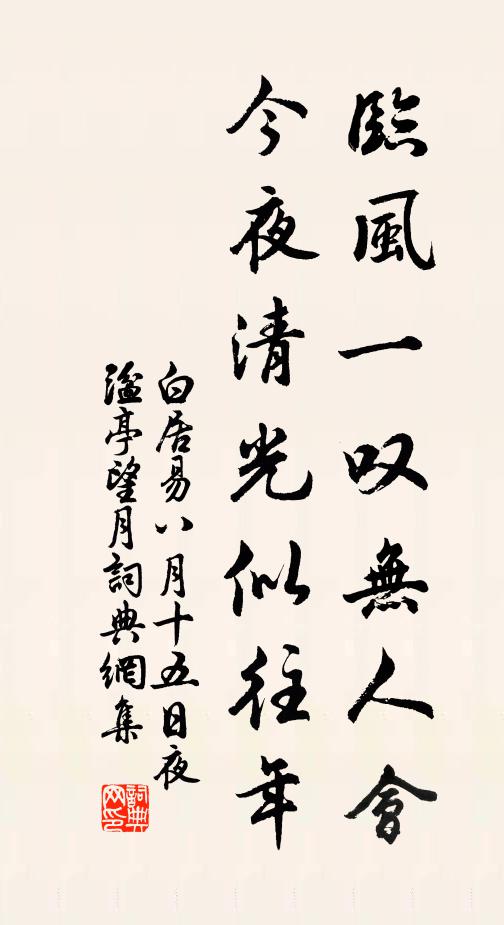 臨風一叹無人會
今夜清光似往年
白居易八月十五日夜
湓亭望月詞典網集
詞典网印